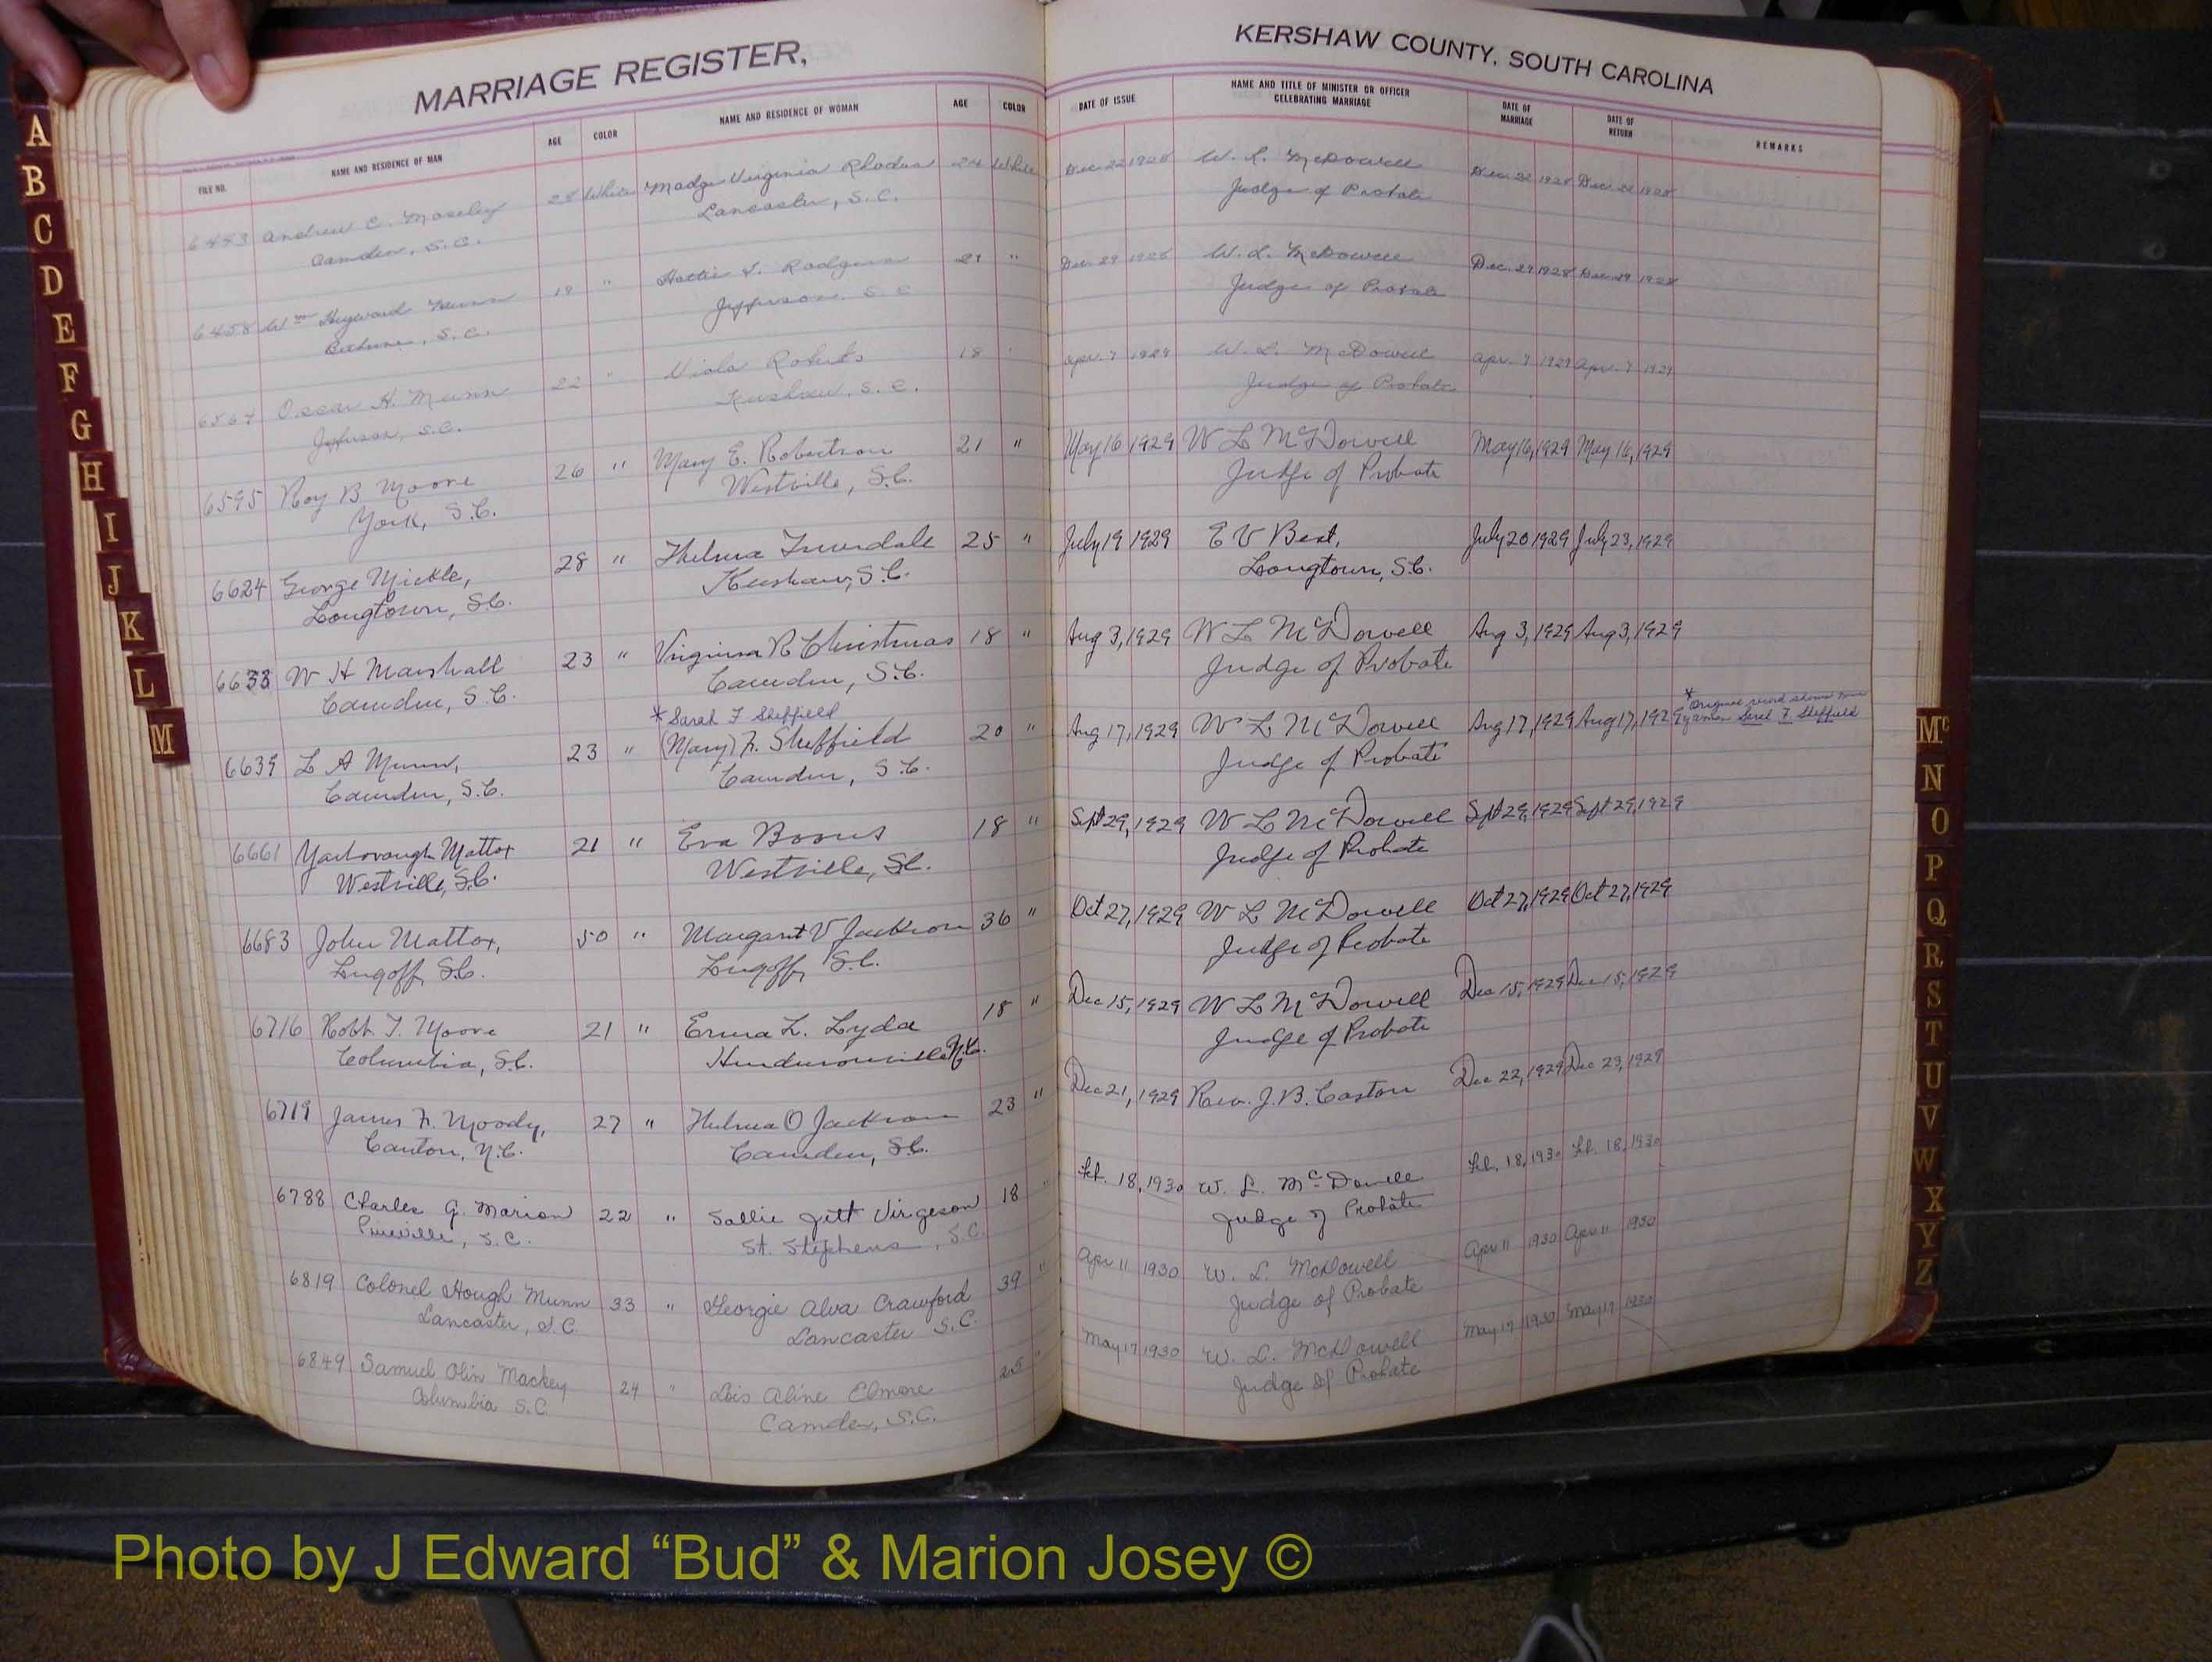 MARRIAGE REGISTER,
KERSHAW COUNTY, SOUTH CAROLINA
FILE NO. NAME AND RESIDENCE OF MAN AGE COLOR NAME AND RESIDENCE OF WOMAN AGE COLOR DATE OF ISSUE NAME AND TITLE OF MINISTER OR OFFICER CELEBRATING MARRIAGE DATE OF MARRIAGE DATE OF RETURN REMARKS
6453 Andrew C. Moseley 28 White Madge Virginia Rhodes 24 White Dec. 22 1928 W. L. McDowell Dec. 22 1928 Dec. 22 1928
Camden, S.C. Lancaster, S.C. Judge of Probate
6458 Wm Heyward Munn 19 " Hattie I. Rodgers 21 " Dec. 29 1928 W. L. McDowell Dec. 29 1928 Dec. 29 1928
Bethune, S.C. Jefferson, S.C. Judge of Probate
6567 Oscar H. Munn 22 " Viola Roberts 18 " Apr. 7 1929 W. L. McDowell Apr. 7 1929 Apr. 7 1929
Jefferson, S.C. Kershaw, S.C. Judge of Probate
6595 Roy B Moore 26 " Mary E. Robertson 21 " May 16 1929 W L McDowell May 16, 1929 May 16, 1929
York, S.C. Westville, S.C. Judge of Probate
6624 George Mickle, 28 " Thelma Truesdale 25 " July 19 1929 E V Best, July 20 1929 July 23, 1929
Longtown, S.C. Kershaw, S.C. Longtown, S.C.
6633 W H Marshall 23 " Virginia R Christmas 18 " Aug 3, 1929 W L McDowell Aug 3, 1929 Aug 3, 1929
Camden, S.C. Camden, S.C. Judge of Probate
* Sarah F Sheffield * Original record shows name
6639 L A Munn, 23 " (Mary) F. Sheffield 20 " Aug 17, 1929 W L McDowell Aug 17, 1929 Aug 17, 1929 of woman Sarah F Sheffield
Camden, S.C. Camden, S.C. Judge of Probate
6661 Yarborough Mattox 21 " Eva Boons 18 " Sept 29, 1929 W L McDowell Sept 29, 1929 Sept 29, 1929
Westville, S.C. Westville, S.C. Judge of Probate
6683 John Mattox, 50 " Margaret V Jackson 36 " Oct 27, 1929 W L McDowell Oct 27, 1929 Oct 27, 1929
Lugoff, S.C. Lugoff, S.C. Judge of Probate
6716 Robt. T. Moore 21 " Erma L. Lyda 18 " Dec 15, 1929 W L McDowell Dec 15, 1929 Dec 15, 1929
Columbia, S.C. Hendersonville N.C. Judge of Probate
6719 James F. Moody, 27 " Thelma O Jackson 23 " Dec 21, 1929 Rev. J. B. Caston Dec 22, 1929 Dec 23, 1929
Canton, N.C. Camden, S.C.
6788 Charles G. Marion 22 " Sallie Jett Virgeson 18 " Feb. 18, 1930 W. L. McDowell Feb. 18, 1930 Feb. 18, 1930
Pineville, S.C. St. Stephens, S.C. Judge of Probate
6819 Colonel Hough Munn 33 " Georgie Alva Crawford 39 " Apr 11 1930 W. L. McDowell Apr 11 1930 Apr 11 1930
Lancaster, S.C. Lancaster S.C. Judge of Probate
6849 Samuel Olin Mackey 24 " Lois Aline Elmore 25 " May 17 1930 W. L. McDowell May 17 1930 May 17 1930
Columbia S.C. Camden, S.C. Judge of Probate
A
B
C
D
E
F
G
H
I
J
K
L
M
Mc
N
O
P
Q
R
S
T
U
V
W
X
Y
Z
Photo by J Edward “Bud” & Marion Josey ©